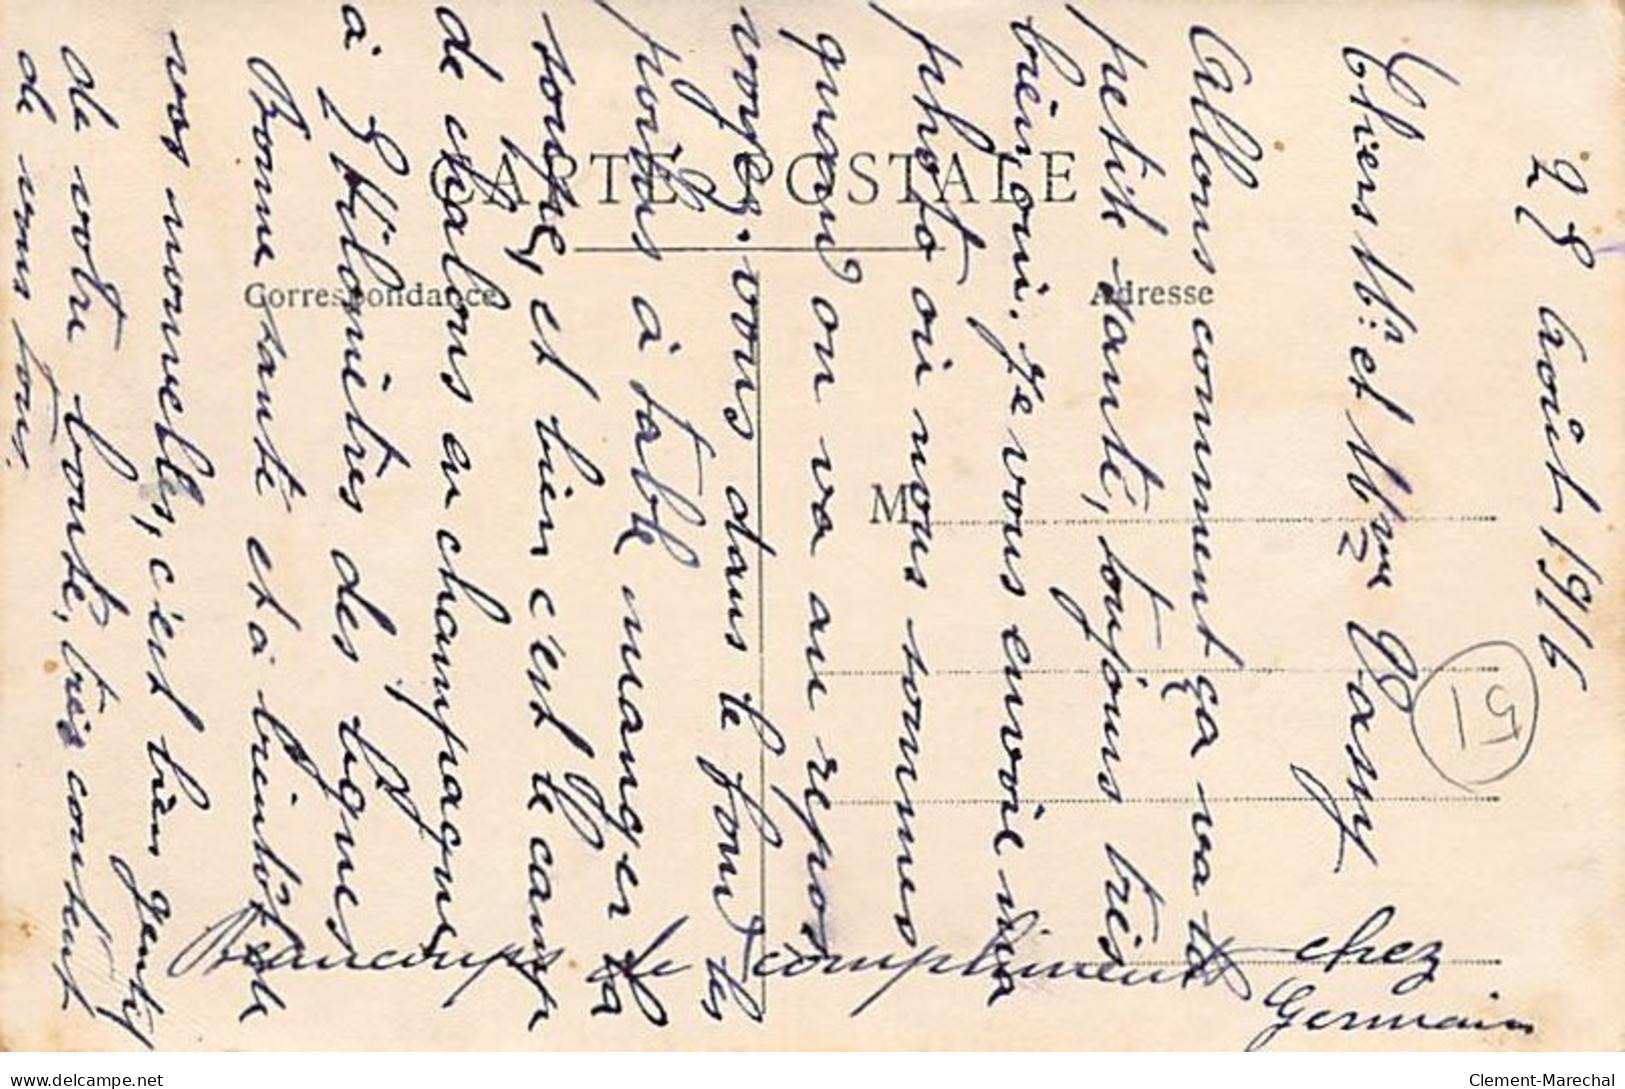 28 Août 1916
Chers Mr: et Mme Passy
Allons comment ça va la
petite santé, toujours très
bien oui. Je vous envoie ma
photo où nous sommes
quand on va au repos
voyez-vous dans le fond les
poilus à table manger la
soupe, et bien c'est le camp
de chalons en champagne
à 8 kilomètres des lignes
Bonne santé et à bientôt de
vos nouvelles, c'est bien gentil
de votre bonté, très content
de vous tous.
Beaucoups de compliments chez
Germain
CARTE POSTALE
Correspondance
Adresse
M
51
delcampe.net
Clement-Marechal